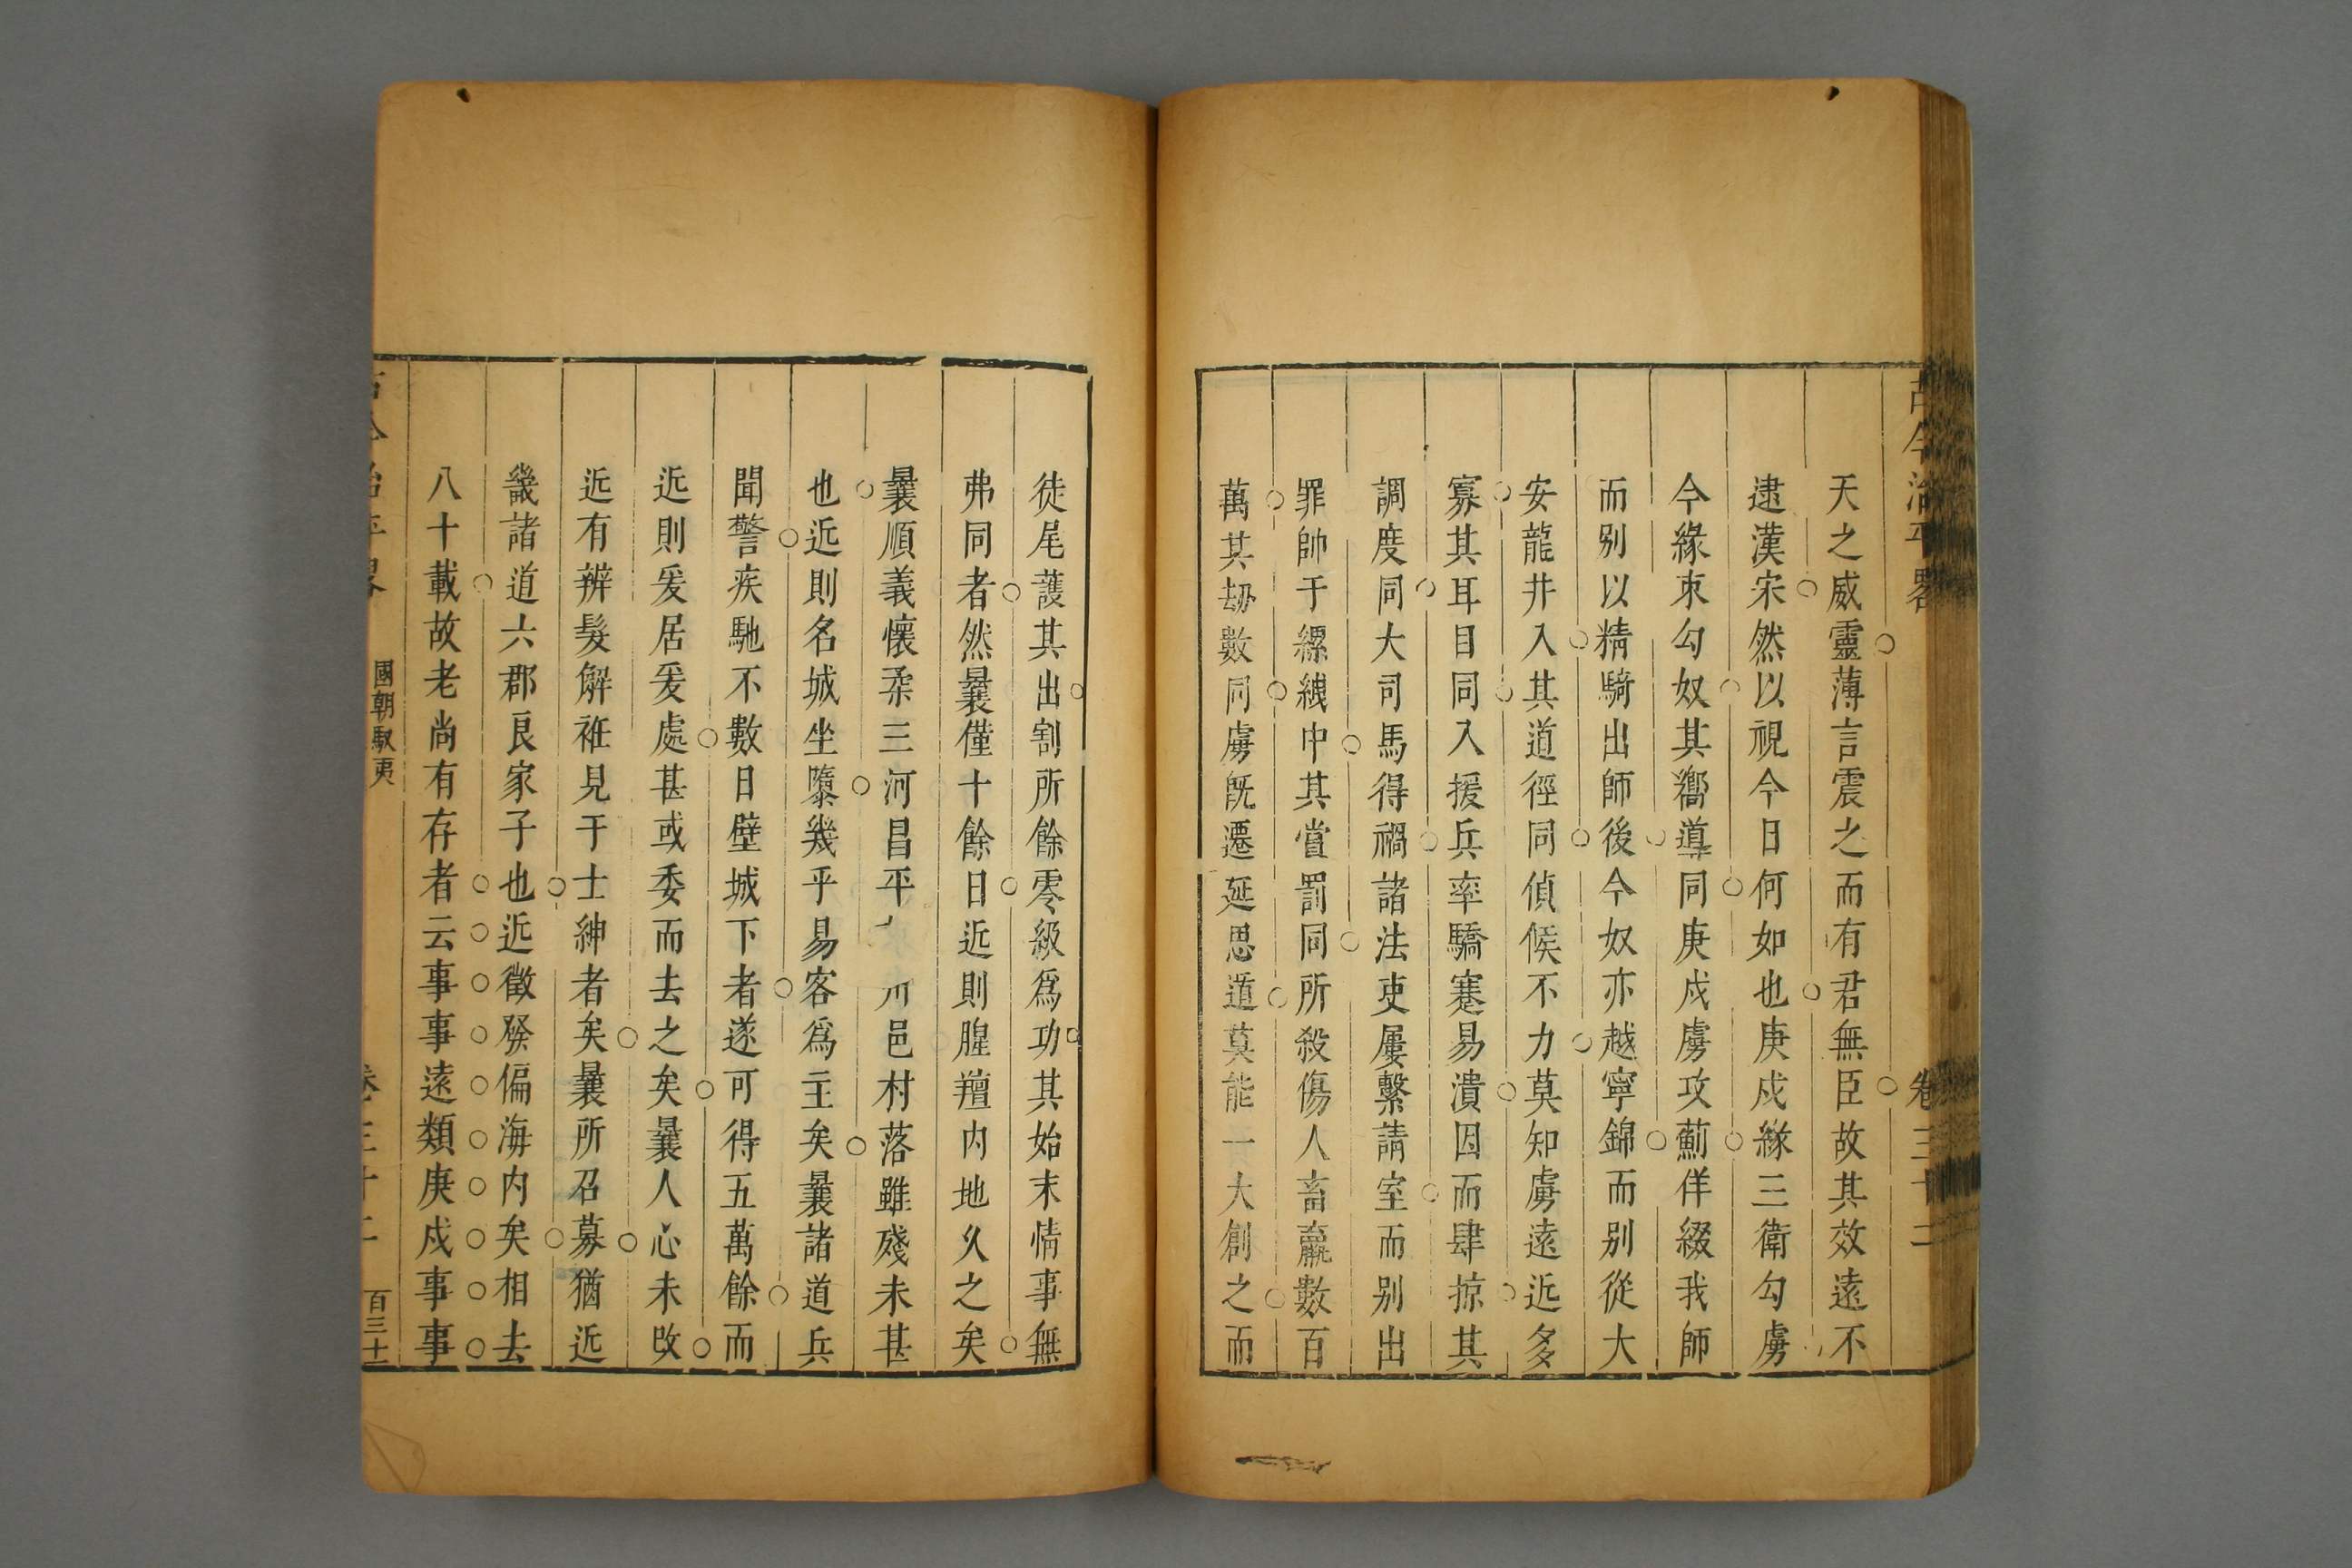 古今治平畧 卷三十二
天之威靈薄言震之而有君無臣故其效遠不
逮漢宋然以視今日何如也庚戍緣三衛勾虜
今緣束勾奴其嚮導同庚戍虜攻薊佯綴我師
而别以精騎出師後今奴亦越寧錦而别從大
安龍井入其道徑同偵候不力莫知虜遠近多
寡其耳目同入援兵率驕蹇易潰因而肆掠其
調度同大司馬得禍諸法吏屢繫請室而别出
罪帥于縲絏中其賞罰同所殺傷人畜羸數百
萬其刼數同虜旣遷延思遁莫能一大創之而
徒尾護其出割所餘零級爲功其始末情事無
弗同者然曩僅十餘日近則腥羶内地乆之矣
曩順義懷柔三河昌平 川邑村落雖殘未甚
也近則名城坐隳幾乎易客爲主矣曩諸道兵
聞警疾馳不數日壁城下者遂可得五萬餘而
近則爰居爰處甚或委而去之矣曩人心未改
近有辨髮解袵見于士紳者矣曩所召募猶近
畿諸道六郡良家子也近徵發偏海内矣相去
八十載故老尚有存者云事事逺類庚戍事事
國朝馭夷
百三十